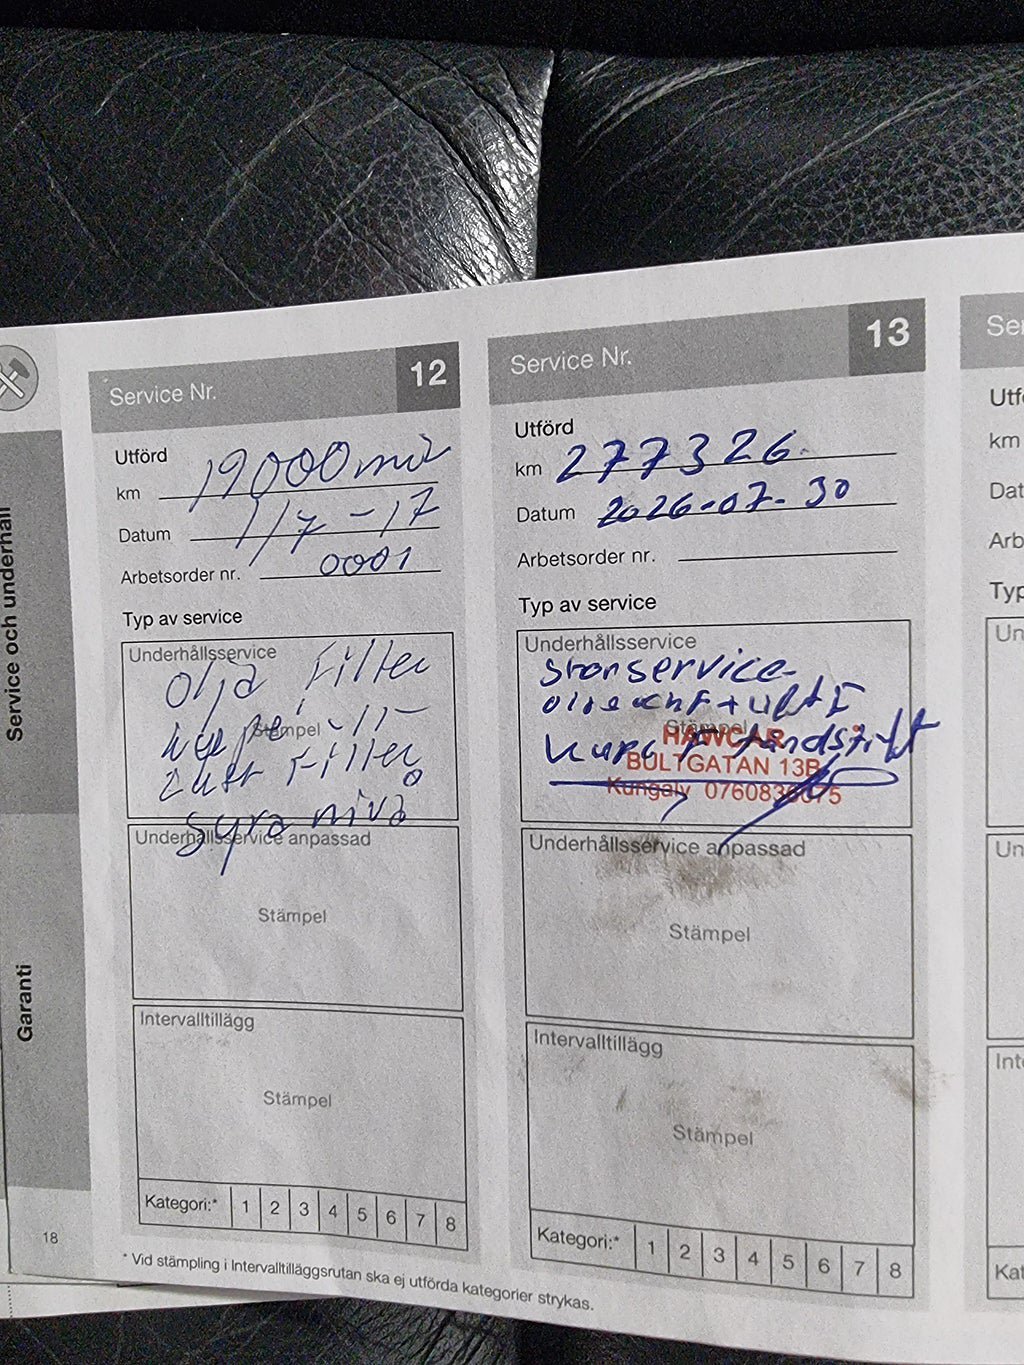 Service och underhåll
Garanti
18
Service Nr. 12
Utförd
km 19000 mil
Datum 1/7-17
Arbetsorder nr. 0001
Typ av service
Underhållsservice
Olja Filter
Stämpel -11-
Luft Filter
syra nivå
Underhållsservice anpassad
Stämpel
Intervalltillägg
Stämpel
Kategori:* 1 2 3 4 5 6 7 8
* Vid stämpling i Intervalltilläggsrutan ska ej utförda kategorier strykas.
Service Nr. 13
Utförd
km 277326.
Datum 2026-07-30
Arbetsorder nr.
Typ av service
Underhållsservice
storservice
Stämpel
HAWCAR
BULTGATAN 13B
Kungälv
tändstift
Underhållsservice anpassad
Stämpel
Intervalltillägg
Stämpel
Kategori:* 1 2 3 4 5 6 7 8
Se
Utf
km
Dat
Arb
Typ
Un
Un
Inte
Kat